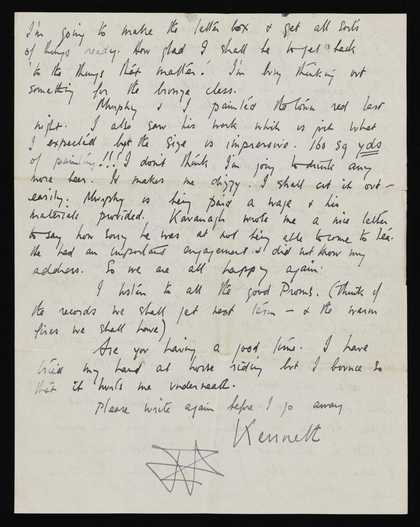 I'm going to make the letter box & get all sorts
of things ready. How glad I shall be to get back
'to the things that matter.' I'm busy thinking out
something for the bronze class.
Murphy & I painted the town red last
night. I also saw his work which is just what
I expected but the size is impressive. 160 sq yds
of painting!!! I dont think I'm going to drink any
more beer. It makes me dizzy. I shall cut it out –
easily. Murphy is being paid a wage & his
materials provided. Kavanagh wrote me a nice letter
to say how sorry he was at not being able to come to tea.
He had an important engagement & did not know my
address. So we are all happy again.
I listen to all the good Proms. (Think of
the records we shall get next term – & the warm
fires we shall have)
Are you having a good time. I have
tried my hand at horse riding but I bounce so
that it hurts me underneath.
Please write again before I go away
Kenneth